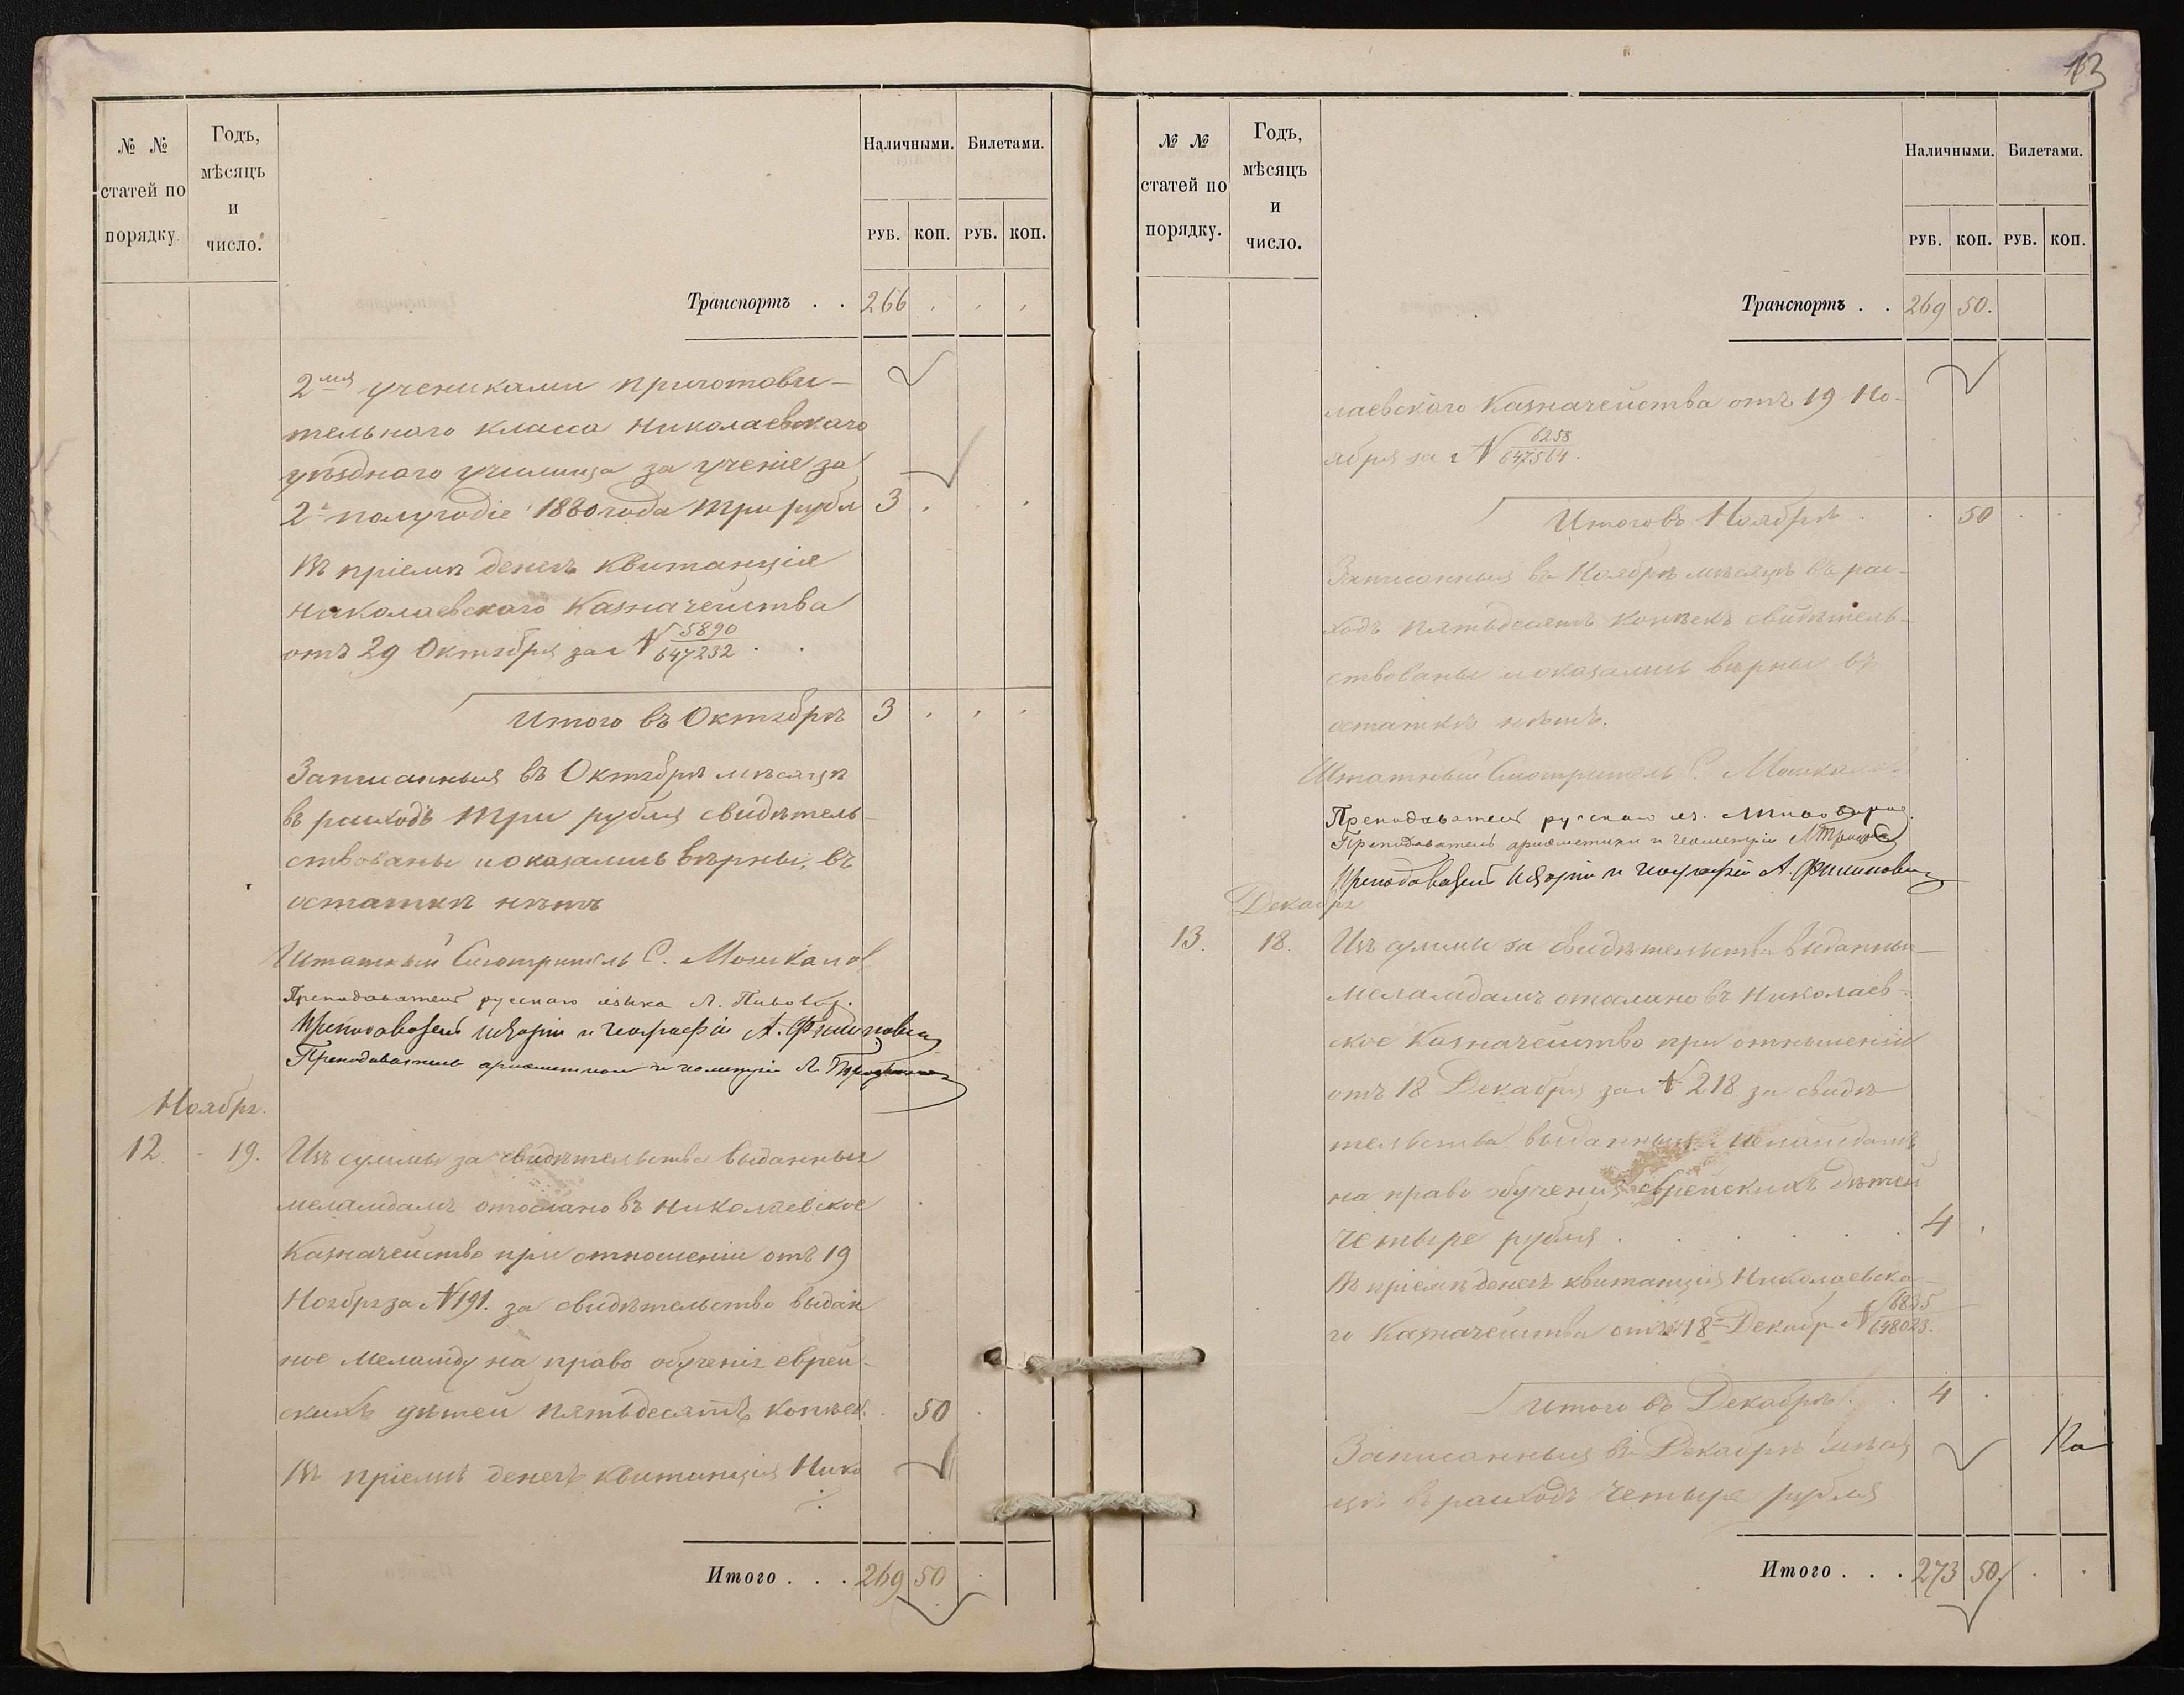 № №
статей по
порядку.
Годъ,
мѣсяцъ
и
число.
Наличными. Билетами.
РУБ. КОП. РУБ. КОП.
Транспортъ . . 266 . . .
2мя учениками приготови-
тельнаго класса Николаевскаго
уѣзднаго училища за ученіе за
2е полугодіе 1880 года три рубл 3 . . .
Въ пріемѣ денегъ квитанція
Николаевскаго Казначейства
отъ 29 Октября за № 5890/647232 . .
Итого въ Октябрѣ 3 . . .
Записанныя въ Октябрѣ мѣсяцѣ
въ расходъ три рубля свидѣтель-
ствованы и оказались вѣрны, въ
остаткѣ нѣтъ
Штатный Смотритель С. Мошкалов
Преподаватель русскаго языка Л. Пивовар.
Преподаватель исторіи и географіи А. Филипович
Преподаватель ариѳметики и геометріи Л.
Ноябрь.
12. 19. Изъ суммы за свидѣтельства выданныя
меламдамъ отослано въ Николаевское
Казначейство при отношеніи отъ 19
Ноября за № 191. за свидѣтельство выдан
ное меламду на право обученія еврей-
скихъ дѣтей пятьдесятъ копѣек. 50
Въ пріемѣ денегъ квитанція Нико
Итого . . . 269 50
13
№ №
статей по
порядку.
Годъ,
мѣсяцъ
и
число.
Наличными. Билетами.
РУБ. КОП. РУБ. КОП.
Транспортъ . . 269 50.
лаевскаго Казначейства отъ 19 Но-
ября за № 6258/647564.
Итого въ Ноябрѣ . . 50 . .
Записанныя въ Ноябрѣ мѣсяцѣ въ рас-
ходъ пятьдесятъ копѣекъ свидѣтель-
ствованы и оказались вѣрны въ
остаткѣ нѣтъ.
Штатный Смотритель С. Мошкалов
Преподаватель русскаго яз.
Преподаватель ариѳметики и геометріи
Преподаватель исторіи и географіи А. Филипович
Декабрь
13. 18. Изъ суммы за свидѣтельства выданныя
меламдамъ отослано въ Николаев-
ское Казначейство при отношеніи
отъ 18 Декабря за № 218 за свидѣ
тельства выданныя меламдамъ
на право обученія еврейскихъ дѣтей
четыре рубля . . . . . 4 .
Въ пріемѣ денегъ квитанція Николаевска-
го Казначейства отъ 18 Декабр № 6835/648023.
Итого въ Декабрѣ . . 4 .
Записанныя въ Декабрѣ мѣся
цѣ въ расходъ четыре рубля
Итого . . . 273 50. . .